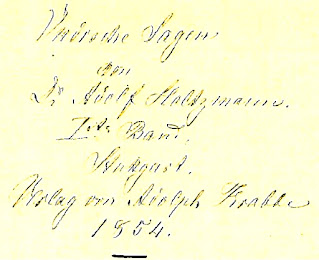 Indische Sagen
von
Dr Adolf Holtzmann.
Iter Band.
Stuttgart.
Verlag von Adolph Krabbe
1854.